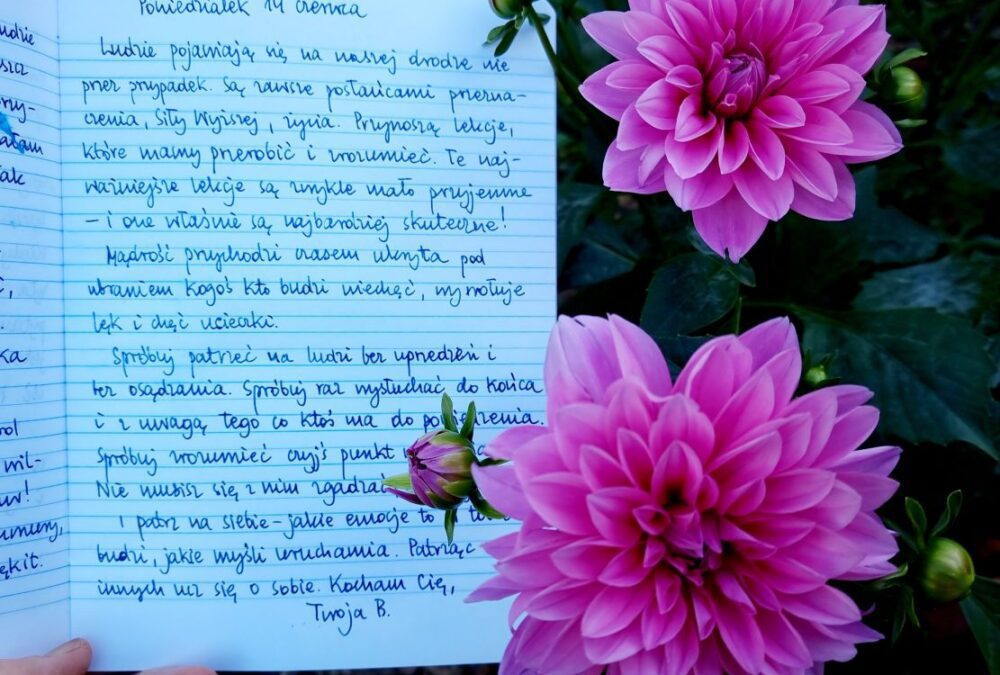 Poniedziałek 14 czerwca
Ludzie pojawiają się na naszej drodze nie
przez przypadek. Są zawsze posłańcami przezna-
czenia, Siły Wyższej, życia. Przynoszą lekcje,
które mamy przerobić i zrozumieć. Te naj-
ważniejsze lekcje są zwykle mało przyjemne
– i one właśnie są najbardziej skuteczne!
Mądrość przychodzi czasem ukryta pod
ubraniem kogoś kto budzi niechęć, wywołuje
lęk i chęć ucieczki.
Spróbuj patrzeć na ludzi bez uprzedzeń i
bez osądzania. Spróbuj raz wysłuchać do końca
i z uwagą tego co ktoś ma do powiedzenia.
Spróbuj zrozumieć czyjś punkt
Nie musisz się z nim zgadzać
I patrz na siebie – jakie emocje to w
budzi, jakie myśli uruchamia. Patrząc
innych ucz się o sobie. Kocham Cię,
Twoja B.
udzie
szcz
rzy-
atam
ak
ka
rol
wil-
uw!
umiemy,
ękit.